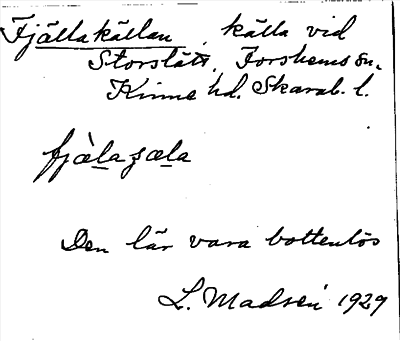 Fjällakällan, källa vid
Storslätt, Forshems sn.
Kinne hd. Skarab. l.
fjàla ɟæla
Den lär vara bottenlös
L. Madsén 1929